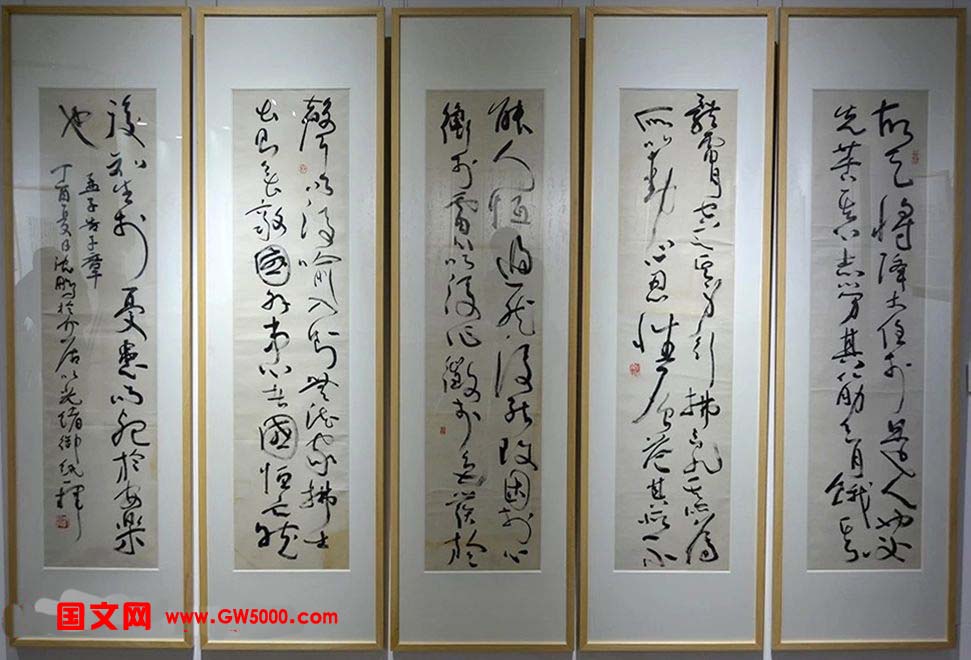 故天將降大任於是人也必
先苦其心志勞其筋骨餓其
體膚空乏其身行拂亂其所為
所以動心忍性曾益其所不
能人恆過然後能改困於心
衡於慮而後作徵於色發於
聲而後喻入則無法家拂士
出則無敵國外患者國恆亡然
後知生於憂患而死於安樂
也
孟子告子章
丁酉夏日沈鵬於介居以光緒御紙揮
国文网 www.GW5000.com